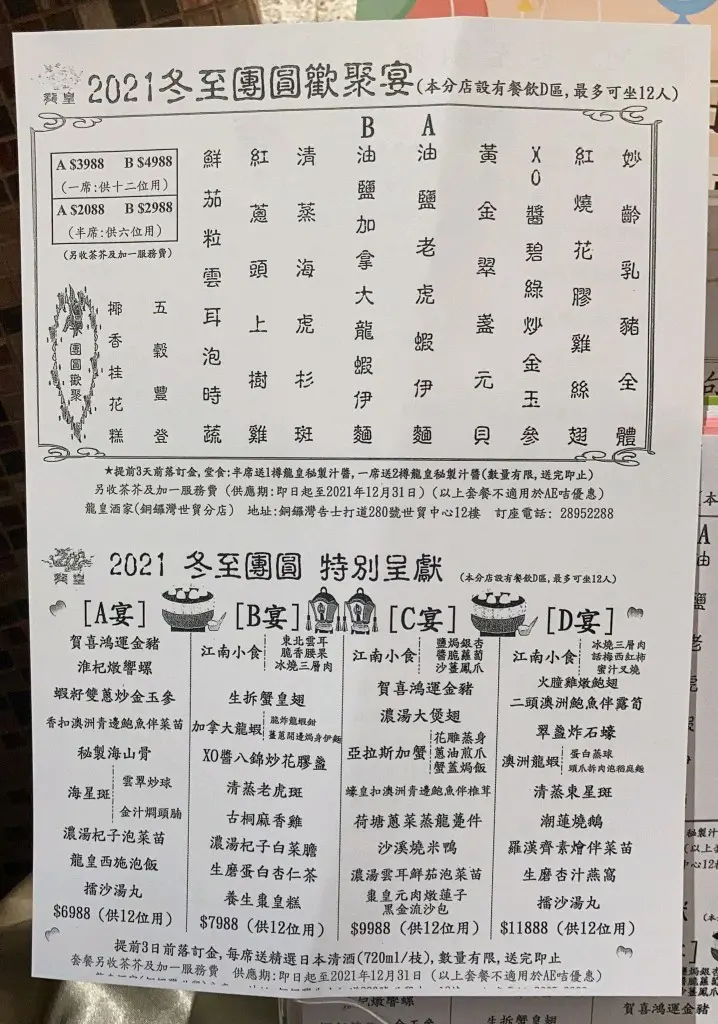 龍皇 2021冬至團圓歡聚宴(本分店設有餐飲D區,最多可坐12人)
A $3988 B $4988
(一席:供十二位用)
A $2088 B $2988
(半席:供六位用)
(另收茶芥及加一服務費)
團圓歡聚
妙齡乳豬全體
紅燒花膠雞絲翅
XO醬碧綠炒金玉參
黃金翠盞元貝
A 油鹽老虎蝦伊麵
B 油鹽加拿大龍蝦伊麵
清蒸海虎杉斑
紅蔥頭上樹雞
鮮茄粒雲耳泡時蔬
五穀豐登
椰香桂花糕
★提前3天前落訂金,堂食:半席送1樽龍皇秘製汁醬,一席送2樽龍皇秘製汁醬(數量有限,送完即止)
另收茶芥及加一服務費 (供應期:即日起至2021年12月31日) (以上套餐不適用於AE咭優惠)
龍皇酒家(銅鑼灣世貿分店) 地址:銅鑼灣告士打道280號世貿中心12樓 訂座電話: 28952288
龍皇 2021 冬至團圓 特別呈獻 (本分店設有餐飲D區,最多可坐12人)
[A宴]
賀喜鴻運金豬
淮杞燉響螺
蝦籽雙蔥炒金玉參
香扣澳洲青邊鮑魚伴菜苗
秘製海山骨
海星斑
雲翠炒球
金汁燜頭腩
濃湯杞子泡菜苗
龍皇西施泡飯
擂沙湯丸
$6988 (供12位用)
[B宴]
江南小食
東北雲耳
脆香腰果
冰燒三層肉
生拆蟹皇翅
加拿大龍蝦
脆炸龍蝦鉗
薑蔥開邊焗身伊麵
XO醬八錦炒花膠盞
清蒸老虎斑
古桐麻香雞
濃湯杞子白菜膽
生磨蛋白杏仁茶
養生棗皇糕
$7988 (供12位用)
[C宴]
江南小食
鹽焗銀杏
醬脆蘿蔔
沙薑鳳爪
賀喜鴻運金豬
濃湯大煲翅
亞拉斯加蟹
花雕蒸身
蔥油煎爪
蟹蓋焗飯
蠔皇扣澳洲青邊鮑魚伴椎茸
荷塘蔥菜蒸龍躉件
沙溪燒米鴨
濃湯雲耳鮮茄泡菜苗
棗皇元肉燉蓮子
黑金流沙包
$9988 (供12位用)
[D宴]
江南小食
冰燒三層肉
話梅西紅柿
蜜汁叉燒
火朣雞燉鮑翅
二頭澳洲鮑魚伴露荀
翠盞炸石蠔
澳洲龍蝦
蛋白蒸球
頭爪拆肉泡稻庭麵
清蒸東星斑
潮蓮燒鵝
羅漢齊素燴伴菜苗
生磨杏汁燕窩
擂沙湯丸
$11888 (供12位用)
提前3日前落訂金,每席送精選日本清酒(720ml/枝),數量有限,送完即止
套餐另收茶芥及加一服務費 供應期:即日起至2021年12月31日 (以上套餐不適用於AE咭優惠)